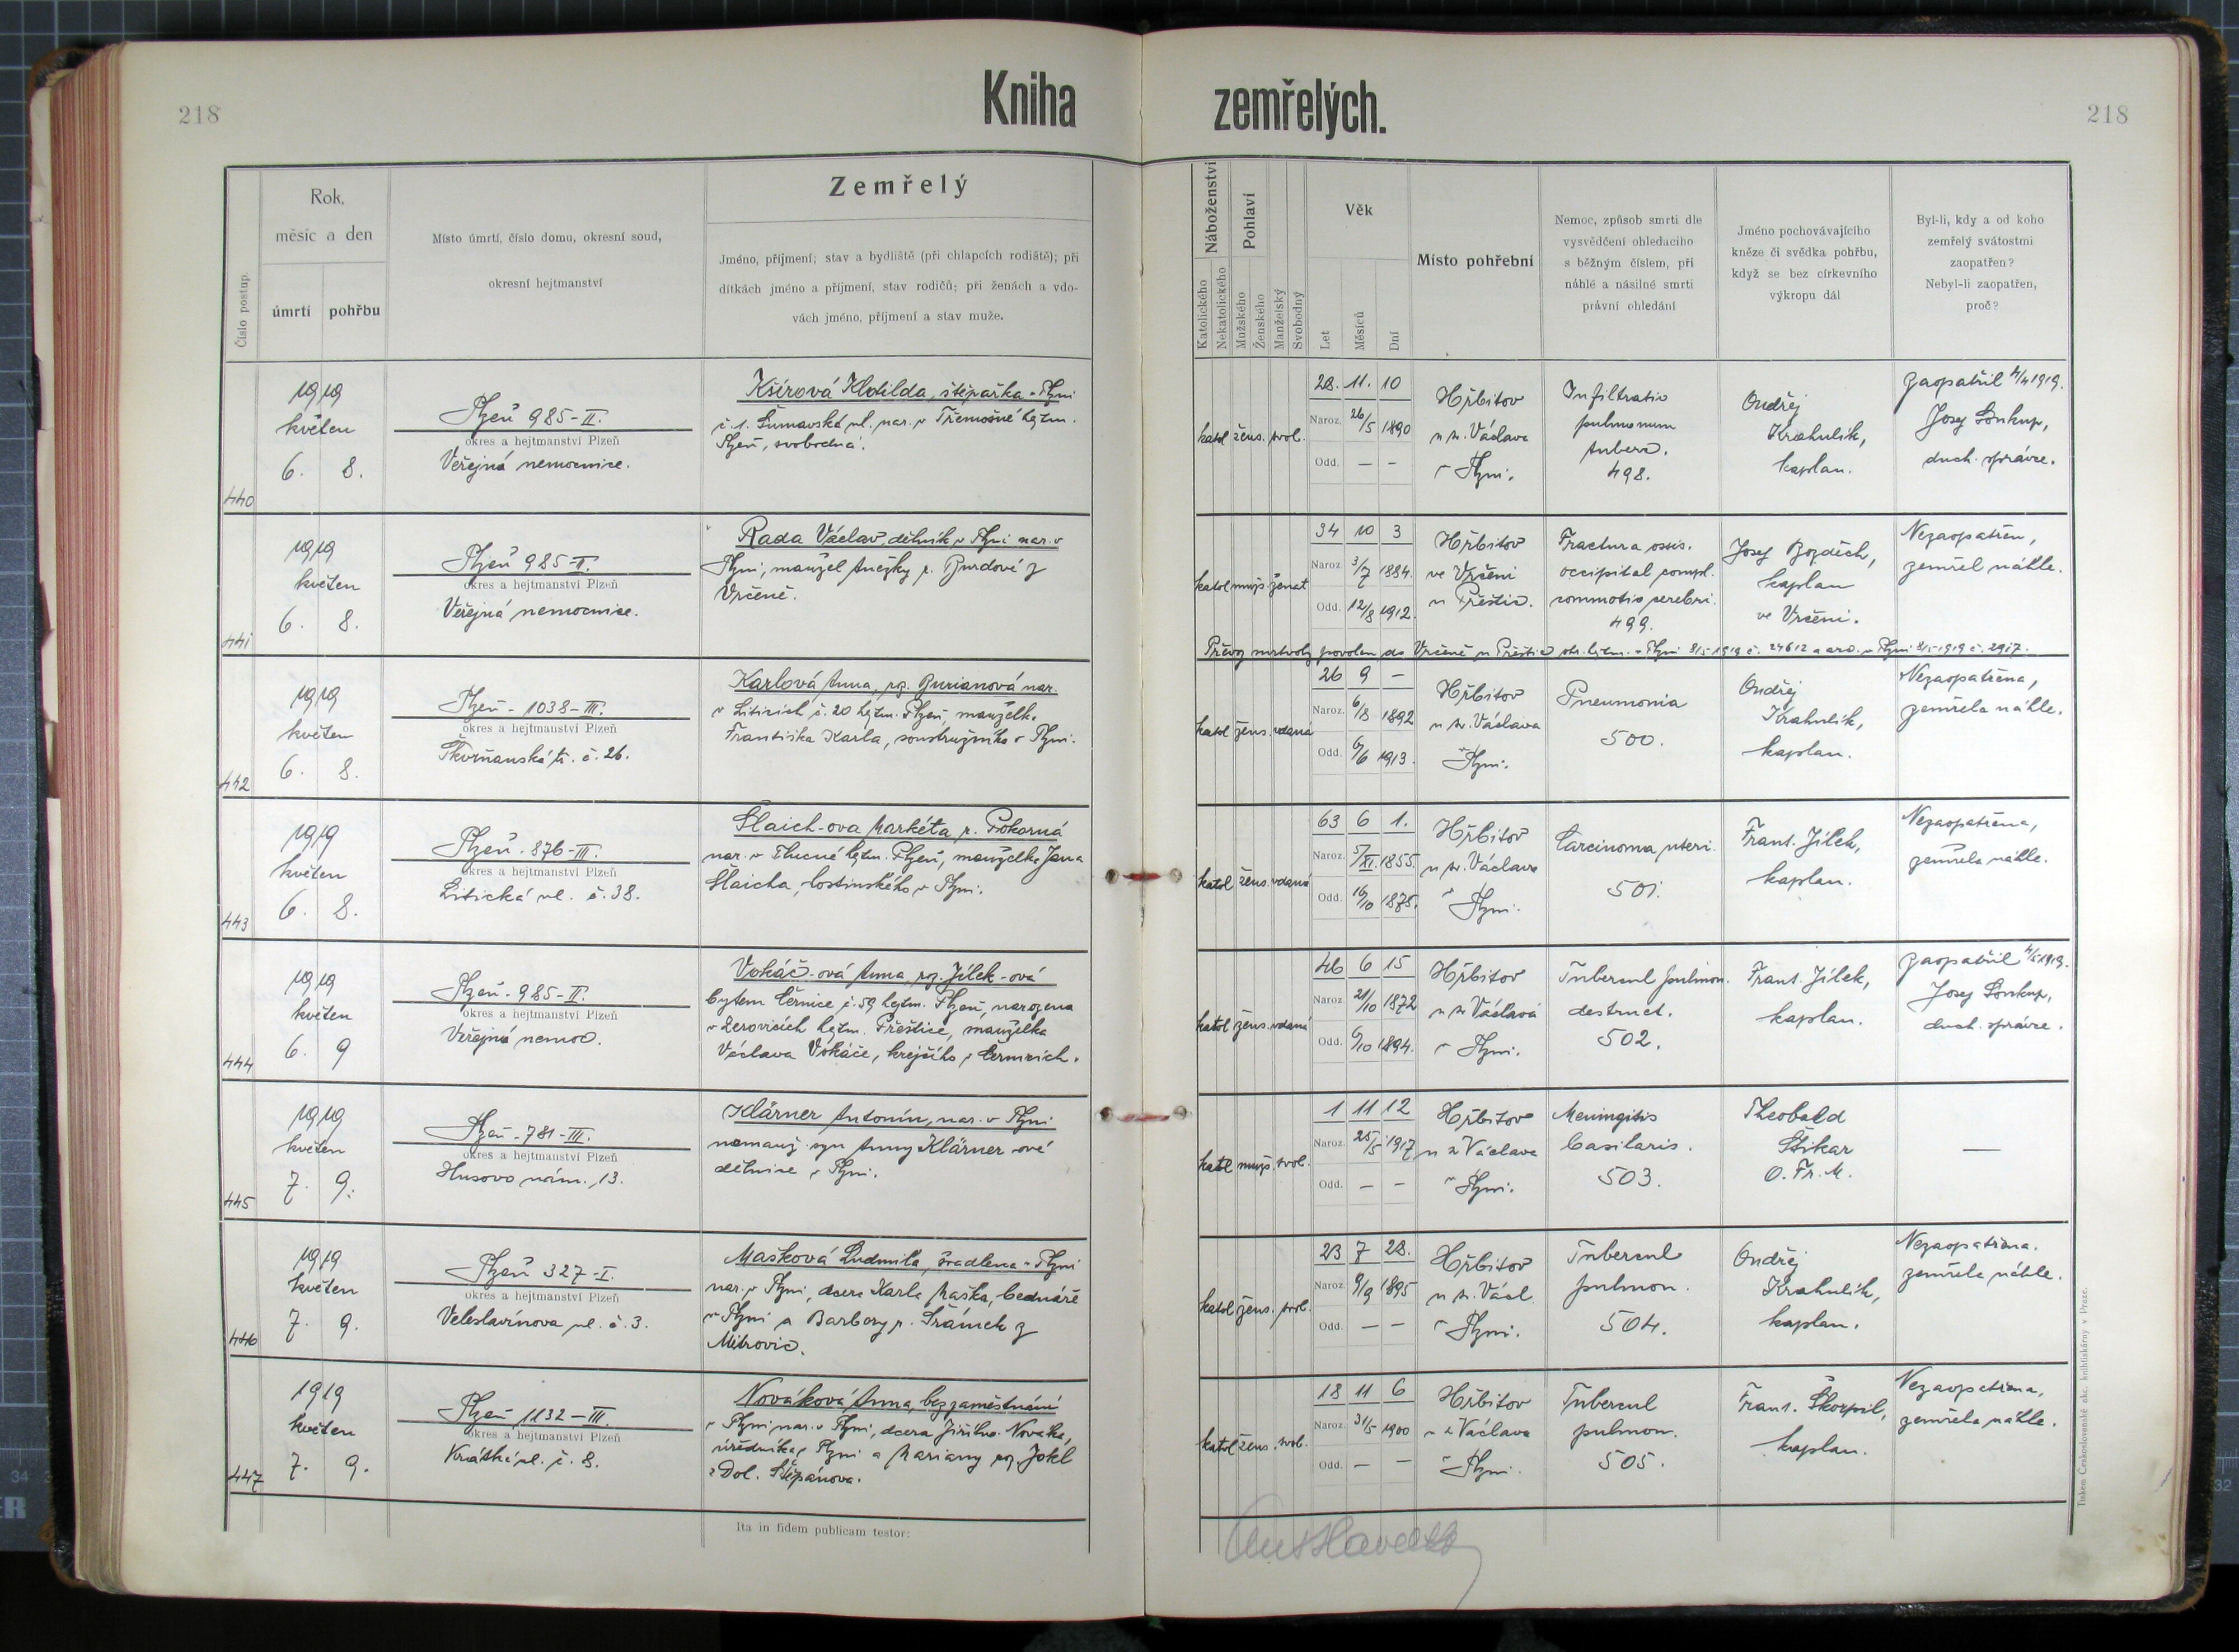 218
Kniha
zemřelých.
218
Číslo postup.
Rok,
měsíc a den
úmrtí
pohřbu
Místo úmrtí, číslo domu, okresní soud,
okresní hejtmanství
Zemřelý
Jméno, příjmení; stav a bydliště (při chlapcích rodiště); při
dítkách jméno a příjmení, stav rodičů; při ženách a vdo-
vách jméno, příjmení a stav muže.
Náboženství
Katolického
Nekatolického
Pohlaví
Mužského
Ženského
Manželský
Svobodný
Věk
Let
Měsíců
Dní
Místo pohřební
Nemoc, způsob smrti dle
vysvědčení ohledacího
s běžným číslem, při
náhlé a násilné smrti
právní ohledání
Jméno pochovávajícího
kněze či svědka pohřbu,
když se bez církevního
výkropu dál
Byl-li, kdy a od koho
zemřelý svátostmi
zaopatřen?
Nebyl-li zaopatřen,
proč?
440
1919
květen
6. 8.
Plzeň 985-II.
okres a hejtmanství Plzeň
Veřejná nemocnice.
Kšírová Klotilda, štěpařka v Plzni
č. 1. Šumavská ul. nar. v Třemošné hejtm.
Plzeň, svobodná.
katol žens. svob.
28. 11. 10
Naroz. 26/5 1890
Odd. — –
Hřbitov
u sv. Václava
v Plzni.
Infiltratio
pulmonum
tuberc.
498.
Ondřej
Krahulík,
kaplan.
Zaopatřil 4/4 1919.
Josef Soukup,
duch. správce.
441
1919
květen
6. 8.
Plzeň 985-II.
okres a hejtmanství Plzeň
Veřejná nemocnice.
Rada Václav, dělník v Plzni nar. v
Plzni, manžel Anežky r. Burdové z
Vrčeně.
katol muž. ženat
34 10 3
Naroz. 3/7 1884.
Odd. 12/8 1912.
Hřbitov
ve Vrčeni
u Přeštic.
Fractura ossis.
occipital compl.
commotio cerebri.
499.
Josef Bozděch,
kaplan
ve Vrčeni.
Nezaopatřen,
zemřel náhle.
Převoz mrtvoly povolen do Vrčeně u Přeštic okr. hejtm. v Plzni 8/5 1919 č. 24612 a arc. v Plzni 8/5 1919 č. 2917.
442
1919
květen
6. 8.
Plzeň - 1038-III.
okres a hejtmanství Plzeň
Škvrňanská tř. č. 26.
Karlová Anna, roz. Burianová nar.
v Liticích č. 20 hejtm. Plzeň, manželk.
Františka Karla, soustružníka v Plzni.
katol žens. vdaná
26 9 –
Naroz. 6/8 1892
Odd. 6/6 1913.
Hřbitov
u sv. Václava
v Plzni.
Pneumonia
500.
Ondřej
Krahulík,
kaplan.
Nezaopatřena,
zemřela náhle.
443
1919
květen
6. 8.
Plzeň - 876-III.
okres a hejtmanství Plzeň
Litická ul. č. 38.
Slaich-ova Markéta r. Pokorná
nar. v Tlucné hejtm. Plzeň, manželka Jana
Slaicha, hostinského v Plzni.
katol žens. vdaná
63 6 1.
Naroz. 5/XI. 1855
Odd. 16/10 1875.
Hřbitov
u sv. Václava
v Plzni.
Carcinoma uteri.
501.
Frant. Jílek,
kaplan.
Nezaopatřena,
zemřela náhle.
444
1919
květen
6. 9
Plzeň - 985-II.
okres a hejtmanství Plzeň
Veřejná nemoc.
Vokáč-ová Anna, roz. Jílek-ová
bytem Černice č. 59 hejtm. Plzeň, narozena
v Zerovicích hejtm. Přeštice, manželka
Václava Vokáče, krejčího v Černicích.
katol žens. vdaná
46 6 15
Naroz. 21/10 1872
Odd. 6/10 1894.
Hřbitov
u sv Václava
v Plzni.
Tubercul pulmon.
destruct.
502.
Frant. Jílek,
kaplan.
Zaopatřil 4/5 1919.
Josef Soukup,
duch. správce.
445
1919
květen
7. 9.
Plzeň - 781-III.
okres a hejtmanství Plzeň
Husovo nám. 13.
Klärner Antonín, nar. v Plzni
nemanž. syn Anny Klärner-ové
dělnice v Plzni.
katol muž. svob.
1 11 12
Naroz. 25/5 1917
Odd. – –
Hřbitov
u sv Václava
v Plzni.
Meningitis
basilaris.
503.
Theobald
Štikar
O. Fr. M.
—
446
1919
květen
7. 9.
Plzeň 327-I.
okres a hejtmanství Plzeň
Veleslavínova ul. č. 3.
Mašková Ludmila, švadlena v Plzni
nar. v Plzni, dcera Karla Maška, bednáře
v Plzni a Barbory r. Šrámek z
Mitrovic.
katol žens. svob.
23 7 28.
Naroz. 9/9 1895
Odd. – –
Hřbitov
u sv. Václ.
v Plzni.
Tubercul
pulmon.
504.
Ondřej
Krahulík,
kaplan.
Nezaopatřena.
zemřela náhle.
447
1919
květen
7. 9.
Plzeň 1132-III.
okres a hejtmanství Plzeň
Krátká ul. č. 8.
Nováková Anna, bez zaměstnání
v Plzni nar. v Plzni, dcera Jiřího Nováka,
úředníka v Plzni a Mariany roz. Jokl
z Dol. Štěpánova.
katol žens. svob.
18 11 6
Naroz. 31/5 1900
Odd. — –
Hřbitov
u sv Václava
v Plzni.
Tubercul
pulmon.
505.
Frant. Škorpil,
kaplan.
Nezaopatřena,
zemřela náhle.
Ita in fidem publicam testor:
Tiskem Československé akc. knihtiskárny v Praze.
34
32